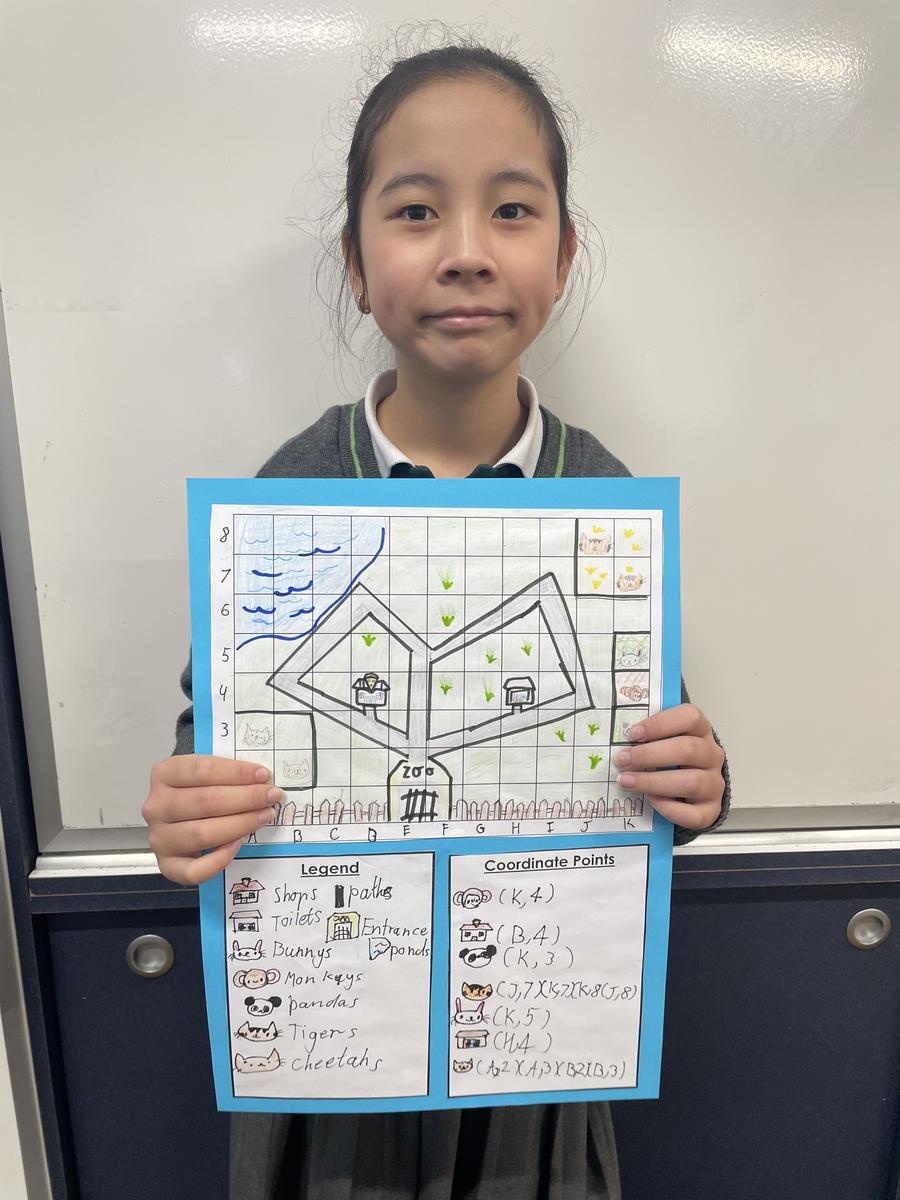 8
7
6
5
4
3
zoo
A B C D E F G H I J K
Legend
Shops paths
Toilets Entrance
Bunnys ponds
Monkeys
pandas
Tigers
cheetahs
Coordinate Points
(K,4)
(B,4)
(K,3)
(J,7)(K,7)(K,8)(J,8)
(K,5)
(H,4)
(A,2)(A,3)(B,2)(B,3)